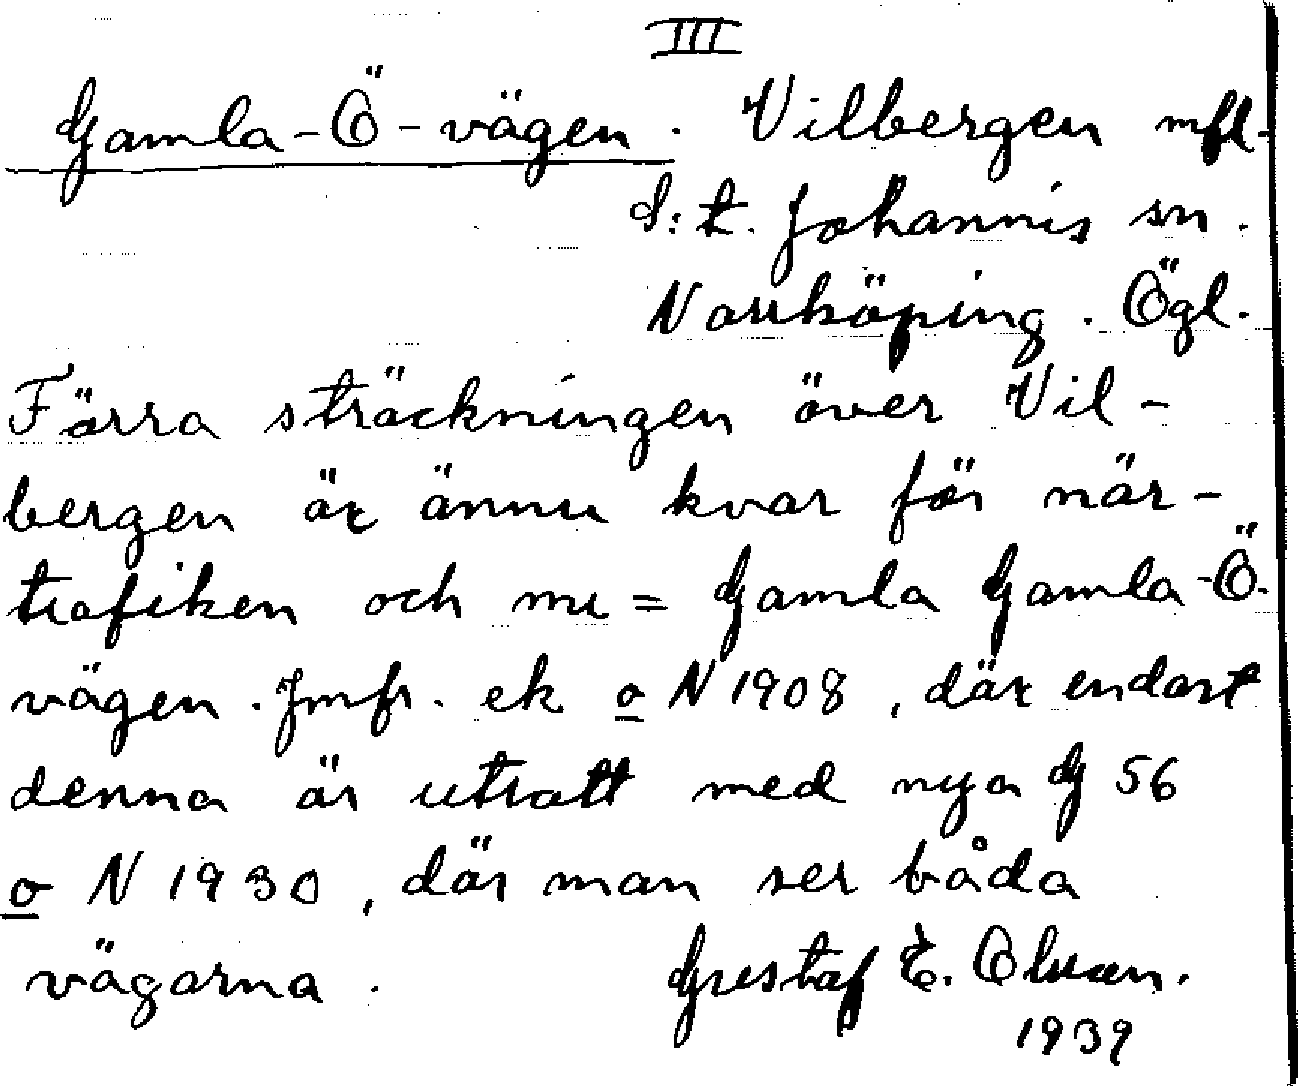 III
Gamla-Ö-vägen. Vilbergen mfl.
S:t. Johannis sn.
Norrköping. Ögl.
Förra sträckningen över Vil-
bergen är ännu kvar för när-
trafiken och nu = Gamla Gamla-Ö.
vägen. Jmfr. ek o N 1908, där endast
denna är utsatt med nya G 56
o N 1930, där man ser båda
vägarna. Gustaf E. Olsson.
1939